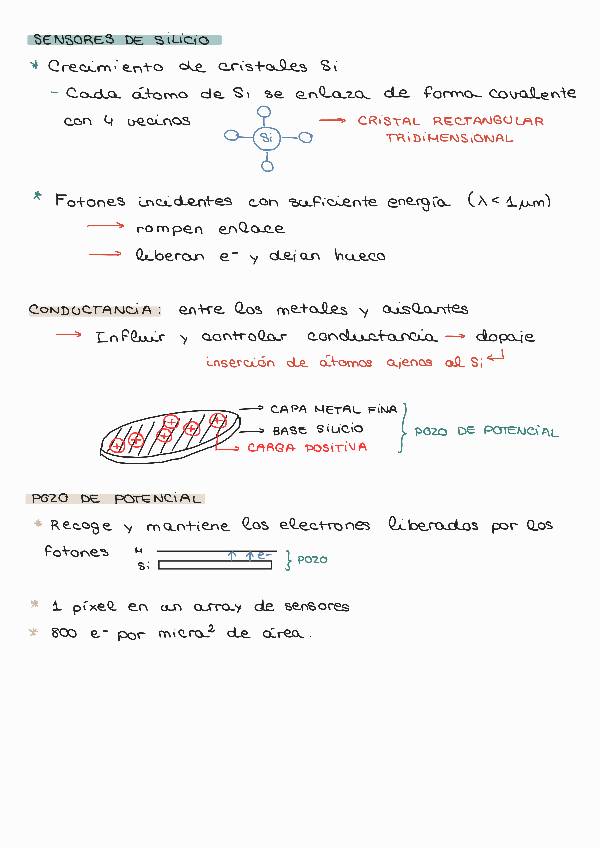 SENSORES DE SILICIO
* Crecimiento de cristales Si
- Cada átomo de Si se enlaza de forma covalente
con 4 vecinos
Si
→ CRISTAL RECTANGULAR
TRIDIMENSIONAL
* Fotones incidentes con suficiente energía (λ < 1 µm)
→ rompen enlace
→ liberan e- y dejan hueco
CONDUCTANCIA: entre los metales y aislantes
→ Influir y controlar conductancia → dopaje
inserción de átomos ajenos al Si
→ CAPA METAL FINA
→ BASE SILICIO
→ CARGA POSITIVA
POZO DE POTENCIAL
+ + + + + +
POZO DE POTENCIAL
* Recoge y mantiene los electrones liberados por los
fotones
M
↑ ↑ e-
Si
POZO
* 1 píxel en un array de sensores
* 800 e- por micra² de área.